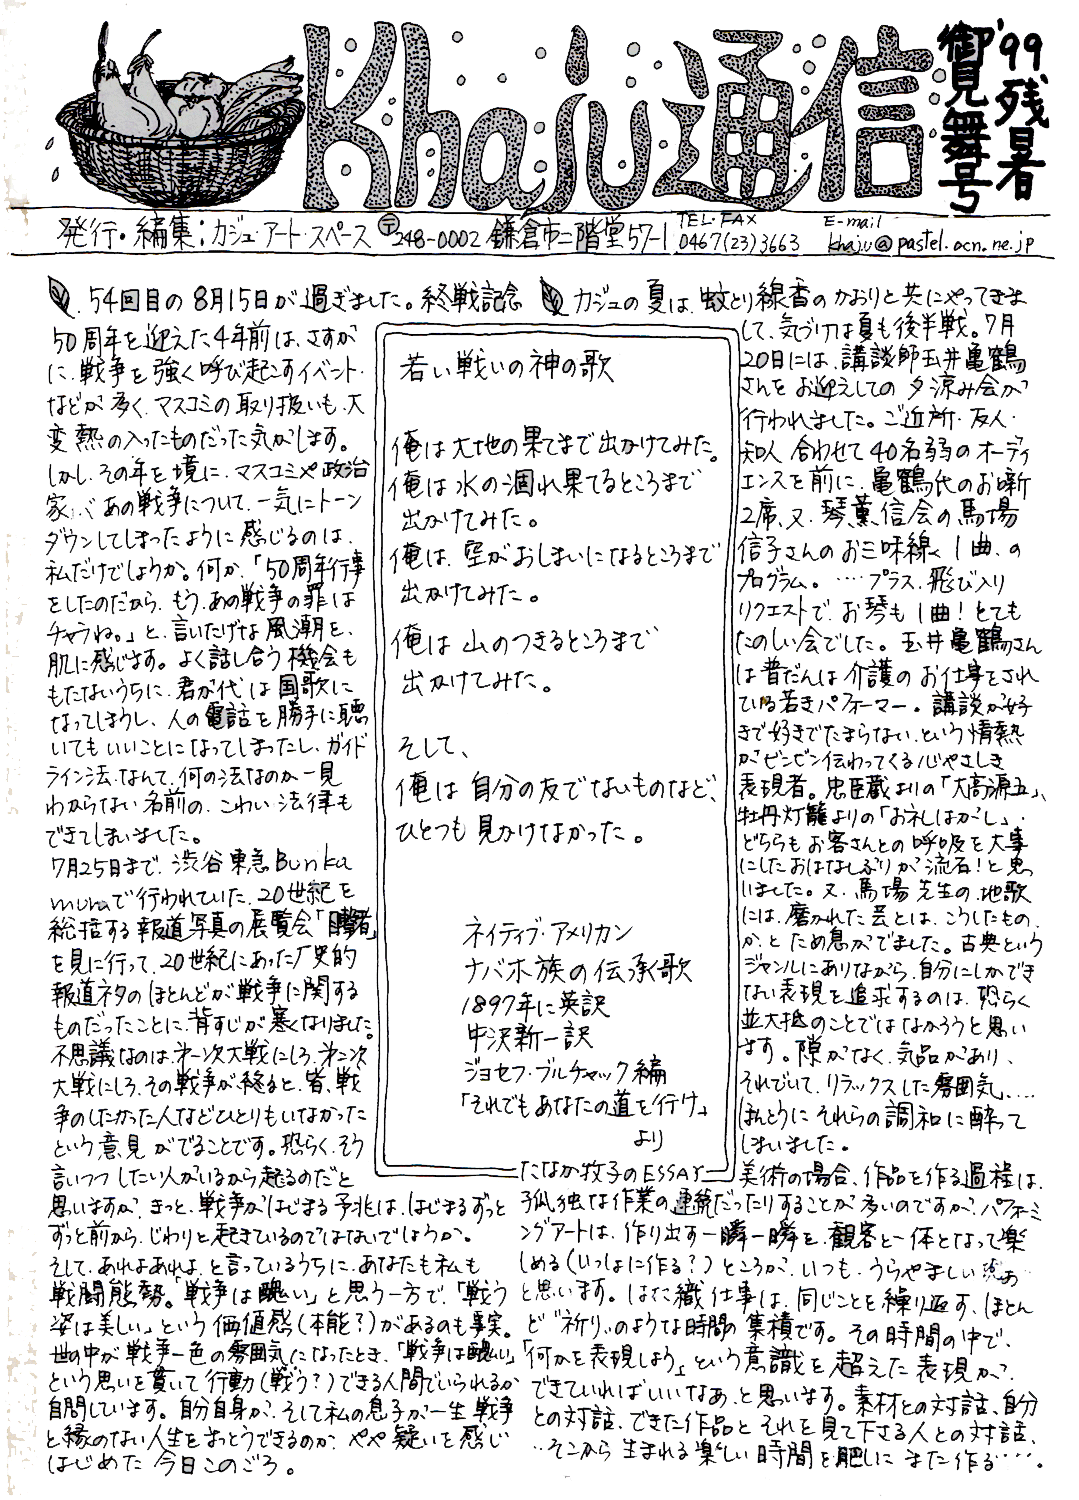 Khaju通信
'99残暑
御見舞号
発行・編集;カジュ・アート・スペース 〒248-0002 鎌倉市二階堂57-1 TEL・FAX 0467(23)3663 E-mail khaju@pastel.ocn.ne.jp
54回目の8月15日が過ぎました。終戦記念
50周年を迎えた4年前は、さすが
に、戦争を強く呼び起こすイベント
などが多く、マスコミの取り扱いも、大
変熱の入ったものだった気がします。
しかし、その年を境に、マスコミや政治
家が、あの戦争について、一気にトーン
ダウンしてしまったように感じるのは、
私だけでしょうか。何か、「50周年行事
をしたのだから、もう、あの戦争の罪は
チャラね。」と、言いたげな風潮を、
肌に感じます。よく話し合う機会も
もたないうちに、君が代は国歌に
なってしまうし、人の電話を勝手に聴
いてもいいことになってしまったし、ガイド
ライン法、なんて、何の法なのか一見
わからない名前の、こわい法律も
できてしまいました。
7月25日まで、渋谷東急Bunka
muraで行われていた、20世紀を
総括する報道写真の展覧会「目撃者」
を見に行って、20世紀にあった「史的
報道ネタのほとんどが戦争に関する
ものだったことに、背すじが寒くなりました。
不思議なのは、第一次大戦にしろ、第二次
大戦にしろ、その戦争が終ると、皆、戦
争のしたかった人などひとりもいなかった
という意見がでることです。恐らく、そう
言いつつしたい人がいるから起るのだと
思いますが、きっと、戦争がはじまる予兆は、はじまるずっと
ずっと前から、じわりと起きているのではないでしょうか。
そして、あれよあれよ、と言っているうちに、あなたも私も
戦闘態勢。「戦争は醜い」と思う一方で、「戦う
姿は美しい」という価値感(本能?)があるのも事実。
世の中が戦争一色の雰囲気になったとき、「戦争は醜い」
という思いを貫いて行動(戦う?)できる人間でいられるか
自問しています。自分自身が、そして私の息子が一生戦争
と縁のない人生をまっとうできるのか、やや疑いを感じ
はじめた今日このごろ。
若い戦いの神の歌
俺は大地の果てまで出かけてみた。
俺は水の涸れ果てるところまで
出かけてみた。
俺は、空がおしまいになるところまで
出かけてみた。
俺は山のつきるところまで
出かけてみた。
そして、
俺は自分の友でないものなど、
ひとつも見かけなかった。
ネイティブ・アメリカン
ナバホ族の伝承歌
1897年に英訳
中沢新一訳
ジョセフ・ブルチャック編
「それでもあなたの道を行け」
より
カジュの夏は、蚊とり線香のかおりと共にやってきま
して、気づけば夏も後半戦。7月
20日には、講談師玉井亀鶴
さんをお迎えしての夕涼み会が
行われました。ご近所・友人・
知人合わせて40名弱のオーディ
エンスを前に、亀鶴代のお噺
2席、又、琴薫信会の馬場
信子さんのお三味線く1曲、の
プログラム。…プラス、飛び入り
リクエストで、お琴も1曲!とても
たのしい会でした。玉井亀鶴さん
は普だんは介護のお仕事をされ
ている若きパフォーマー。講談が好
きで好きでたまらない、という情熱
がビンビン伝わってくる心やさしき
表現者。忠臣蔵よりの「大高源五」、
牡丹灯籠よりの「お札はがし」・
どちらもお客さんとの呼吸を大事
にしたおはなしぶりが流石!と思
いました。又、馬場先生の地歌
には、磨かれた芸とは、こうしたもの
か、とため息がでました。古典という
ジャンルにありながら、自分にしかでき
ない表現を追求するのは、恐らく
並大抵のことではなかろうと思い
ます。隙がなく、気品があり、
それでいて、リラックスした雰囲気….
ほんとうにそれらの調和に酔って
しまいました。
たなか牧子のESSAY
美術の場合、作品を作る過程は、
孤独な作業の連続だったりすることが多いのですが、パフォーミ
ングアートは、作り出す一瞬一瞬を、観客と一体となって楽
しめる(いっしょに作る?)ところが、いつも、うらやましいなぁ
と思います。はた織仕事は、同じことを繰り返す、ほとん
ど“祈り”のような時間の集積です。その時間の中で、
「何かを表現しよう」という意識を超えた表現が、
できていればいいなあ、と思います。素材との対話、自分
との対話、できた作品とそれを見て下さる人との対話、
…そこから生まれる楽しい時間を肥しにまた作る….。